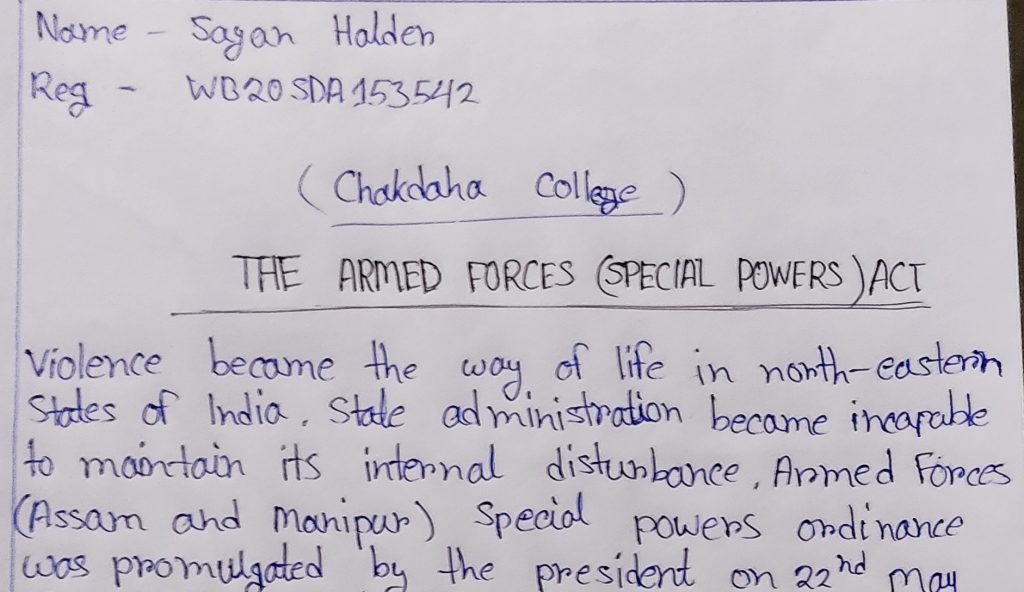 Name - Sagar Halder
Reg - WB20SDA153542
(Chakdaha College)
THE ARMED FORCES (SPECIAL POWERS) ACT
Violence became the way of life in north-eastern
States of India. State administration became incapable
to maintain its internal disturbance. Armed Forces
(Assam and Manipur) Special powers ordinance
was promulgated by the president on 22nd May